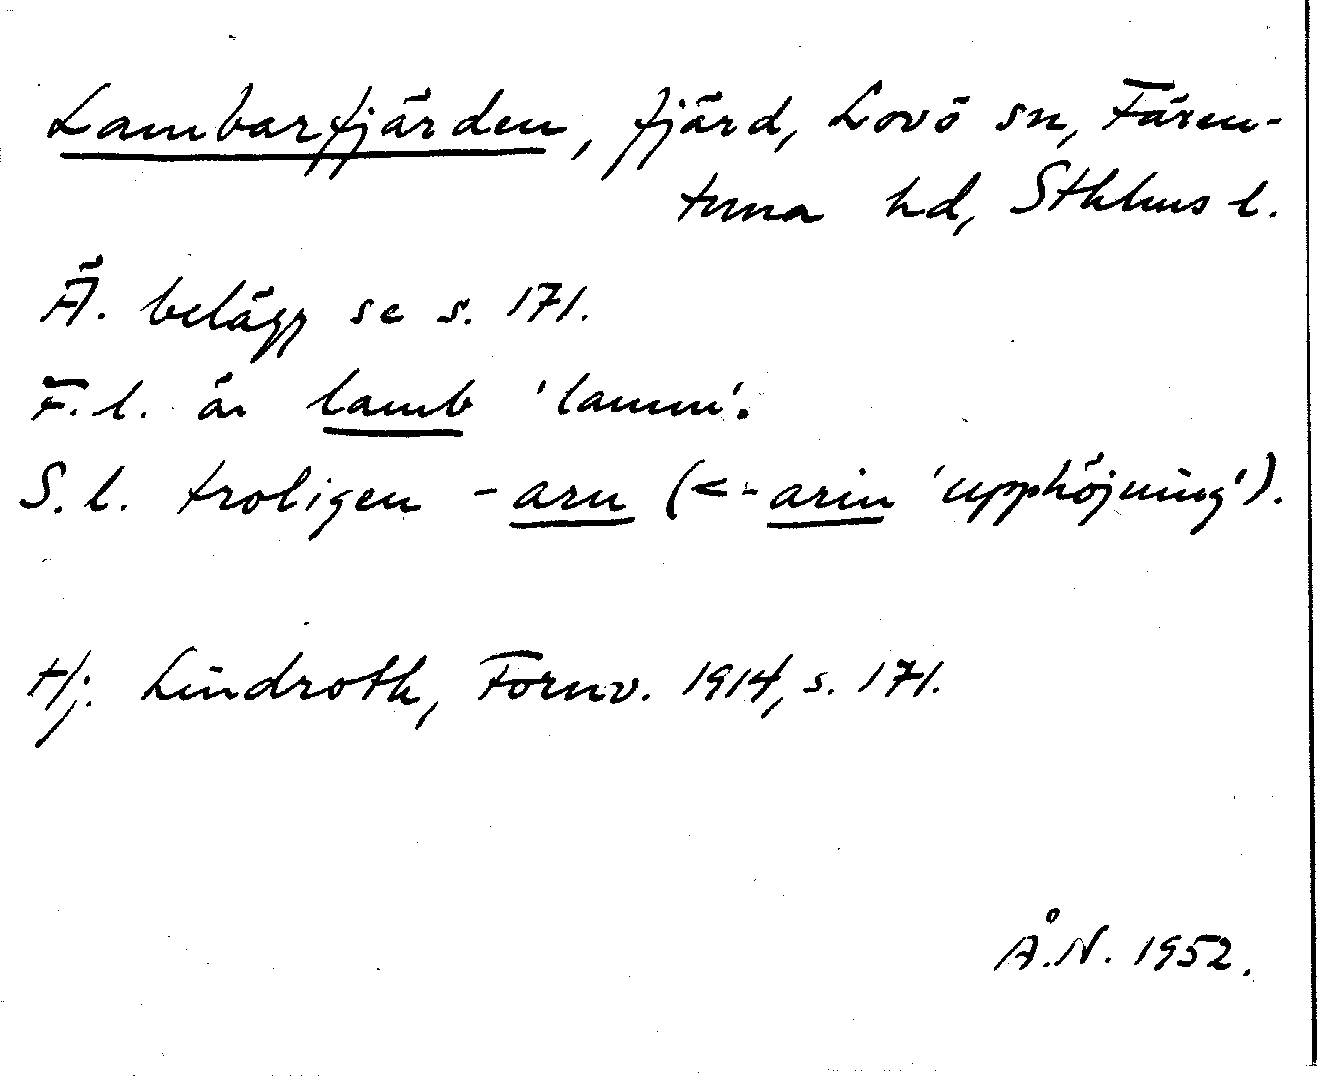 Lambarfjärden, fjärd, Lovö sn, Fären-
tuna hd, Sthlms l.
Ä. belägg se s. 171.
F.l. är lamb 'lamm'.
S.l. troligen -arn (<-arin 'upphöjning').
Hj. Lindroth, Fornv. 1914, s. 171.
Å.N. 1952.